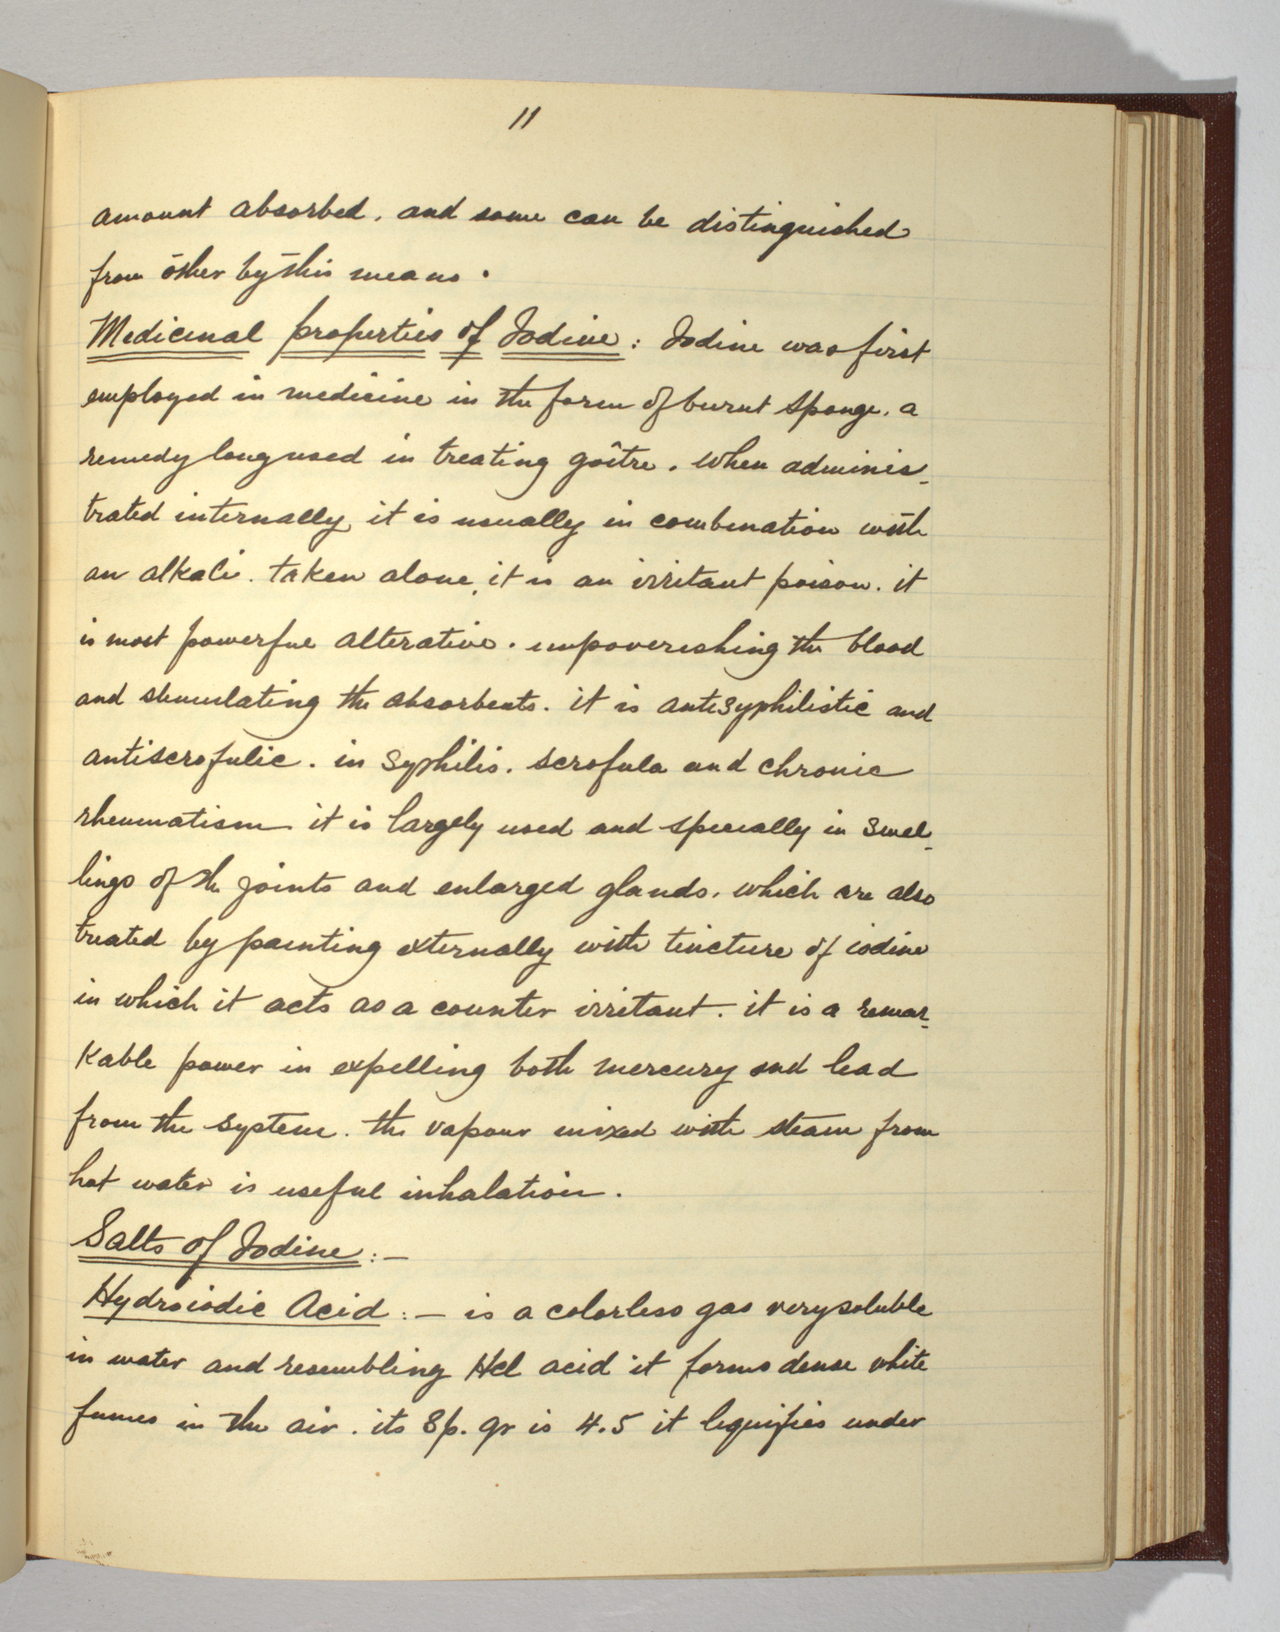 11
amount absorbed. and some can be distinguished
from other by this means.
Medicinal properties of Iodine: Iodine was first
employed in medicine in the form of burnt sponge. a
remedy long used in treating goître. when adminis-
trated internally, it is usually in combination with
an alkali. taken alone, it is an irritant poison. it
is most powerful alterative. impoverishing the blood
and stimulating the absorbents. it is antisyphilistic and
antiscrofulic. in syphilis. scrofula and chronic
rheumatism it is largely used and specially in swel-
lings of the joints and enlarged glands. which are also
treated by painting externally with tincture of iodine
in which it acts as a counter irritant. it is a remar-
kable power in expelling both mercury and lead
from the system. the vapour mixed with steam from
hot water is useful inhalation.
Salts of Iodine:—
Hydroiodic Acid:— is a colorless gas very soluble
in water and resembling Hcl acid it forms dense white
fumes in the air. its Sp. gr is 4.5 it liquifies under